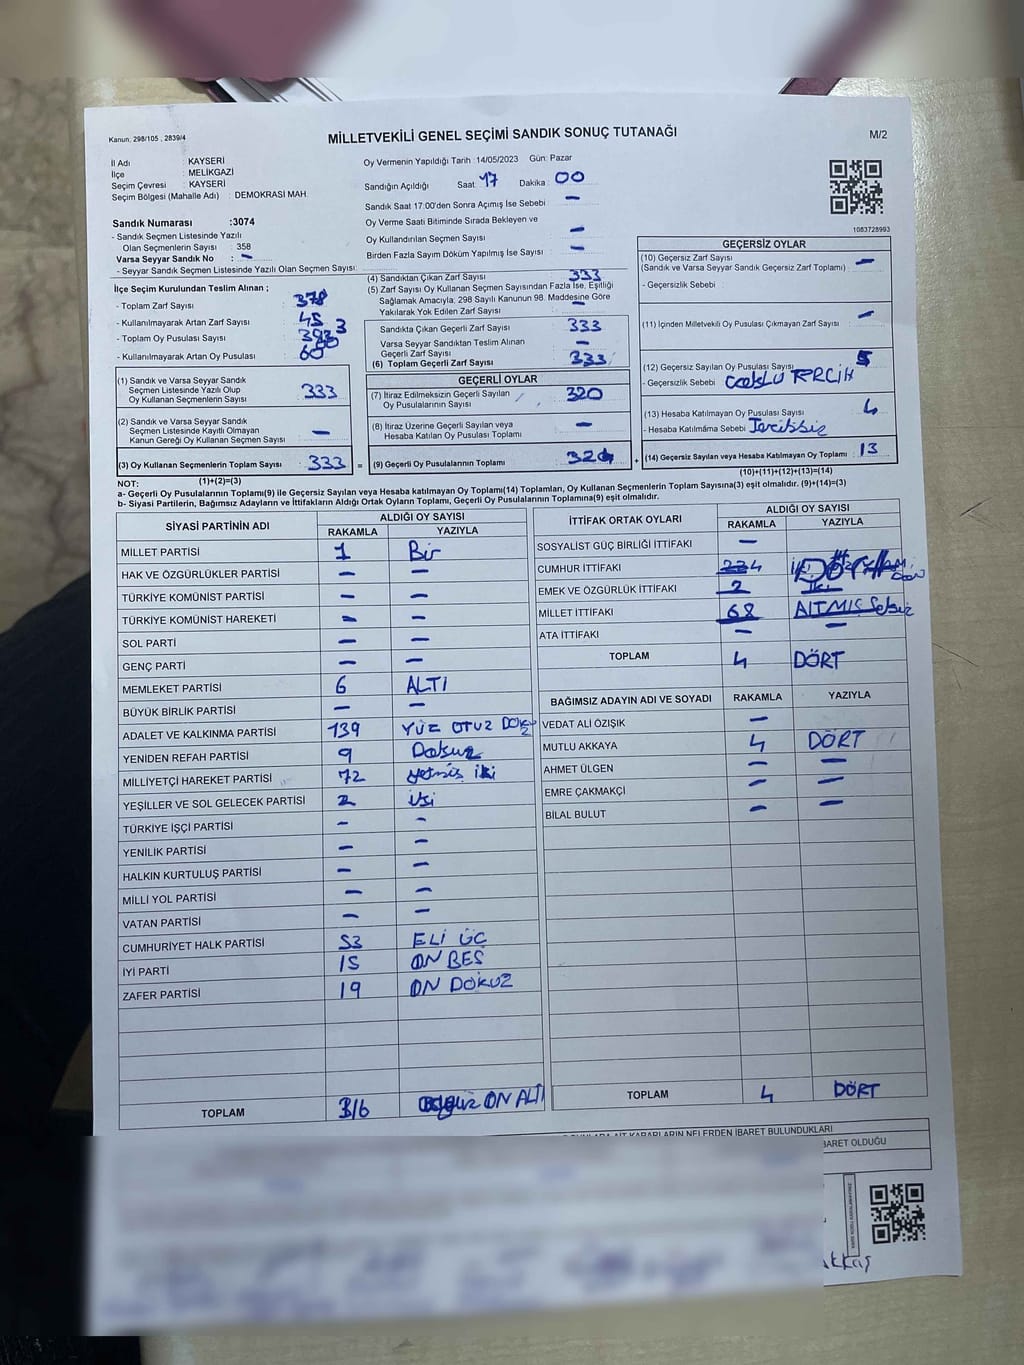 Kanun: 298/105 , 2839/4
MİLLETVEKİLİ GENEL SEÇİMİ SANDIK SONUÇ TUTANAĞI
M/2
İl Adı : KAYSERİ
İlçe : MELİKGAZİ
Seçim Çevresi : KAYSERİ
Seçim Bölgesi (Mahalle Adı) : DEMOKRASİ MAH.
Oy Vermenin Yapıldığı Tarih : 14/05/2023 Gün: Pazar
Sandığın Açıldığı Saat: 17 Dakika: 00
Sandık Saat 17:00'den Sonra Açımış İse Sebebi : –
Oy Verme Saati Bitiminde Sırada Bekleyen ve
Oy Kullandırılan Seçmen Sayısı –
Birden Fazla Sayım Döküm Yapılmış İse Sayısı : –
1083728993
Sandık Numarası :3074
- Sandık Seçmen Listesinde Yazılı
Olan Seçmenlerin Sayısı : 358
Varsa Seyyar Sandık No : –
- Seyyar Sandık Seçmen Listesinde Yazılı Olan Seçmen Sayısı:
İlçe Seçim Kurulundan Teslim Alınan ;
- Toplam Zarf Sayısı : 378
- Kullanılmayarak Artan Zarf Sayısı : 45
- Toplam Oy Pusulası Sayısı :
- Kullanılmayarak Artan Oy Pusulası : 60
(1) Sandık ve Varsa Seyyar Sandık
Seçmen Listesinde Yazılı Olup
Oy Kullanan Seçmenlerin Sayısı 333
(2) Sandık ve Varsa Seyyar Sandık
Seçmen Listesinde Kayıtlı Olmayan
Kanun Gereği Oy Kullanan Seçmen Sayısı –
(3) Oy Kullanan Seçmenlerin Toplam Sayısı 333 =
(4) Sandıktan Çıkan Zarf Sayısı 333
(5) Zarf Sayısı Oy Kullanan Seçmen Sayısından Fazla İse, Eşitliği
Sağlamak Amacıyla, 298 Sayılı Kanunun 98. Maddesine Göre
Yakılarak Yok Edilen Zarf Sayısı : –
Sandıkta Çıkan Geçerli Zarf Sayısı 333
Varsa Seyyar Sandıktan Teslim Alınan
Geçerli Zarf Sayısı –
(6) Toplam Geçerli Zarf Sayısı 333
GEÇERLİ OYLAR
(7) İtiraz Edilmeksizin Geçerli Sayılan
Oy Pusulalarının Sayısı 320
(8) İtiraz Üzerine Geçerli Sayılan veya
Hesaba Katılan Oy Pusulası Toplamı –
(9) Geçerli Oy Pusulalarının Toplamı +
GEÇERSİZ OYLAR
(10) Geçersiz Zarf Sayısı –
(Sandık ve Varsa Seyyar Sandık Geçersiz Zarf Toplamı)
- Geçersizlik Sebebi :
(11) İçinden Milletvekili Oy Pusulası Çıkmayan Zarf Sayısı –
(12) Geçersiz Sayılan Oy Pusulası Sayısı
- Geçersizlik Sebebi
(13) Hesaba Katılmayan Oy Pusulası Sayısı 4
- Hesaba Katılmama Sebebi
(14) Geçersiz Sayılan veya Hesaba Katılmayan Oy Toplamı 13
NOT: (1)+(2)=(3)
(10)+(11)+(12)+(13)=(14)
a- Geçerli Oy Pusulalarının Toplamı(9) ile Geçersiz Sayılan veya Hesaba katılmayan Oy Toplamı(14) Toplamları, Oy Kullanan Seçmenlerin Toplam Sayısına(3) eşit olmalıdır. (9)+(14)=(3)
b- Siyasi Partilerin, Bağımsız Adayların ve İttifakların Aldığı Ortak Oyların Toplamı, Geçerli Oy Pusulalarının Toplamına(9) eşit olmalıdır.
SİYASİ PARTİNİN ADI ALDIĞI OY SAYISI
RAKAMLA YAZIYLA
MİLLET PARTİSİ 1 Bir
HAK VE ÖZGÜRLÜKLER PARTİSİ – –
TÜRKİYE KOMÜNİST PARTİSİ – –
TÜRKİYE KOMÜNİST HAREKETİ – –
SOL PARTİ – –
GENÇ PARTİ – –
MEMLEKET PARTİSİ 6 ALTI
BÜYÜK BİRLİK PARTİSİ – –
ADALET VE KALKINMA PARTİSİ 139 YÜZ OTUZ DOKUZ
YENİDEN REFAH PARTİSİ 9 Dokuz
MİLLİYETÇİ HAREKET PARTİSİ 72 yetmiş iki
YEŞİLLER VE SOL GELECEK PARTİSİ 2 iki
TÜRKİYE İŞÇİ PARTİSİ – –
YENİLİK PARTİSİ – –
HALKIN KURTULUŞ PARTİSİ – –
MİLLİ YOL PARTİSİ – –
VATAN PARTİSİ – –
CUMHURİYET HALK PARTİSİ 53 ELİ ÜÇ
İYİ PARTİ 15 ON BEŞ
ZAFER PARTİSİ 19 ON DOKUZ
TOPLAM 316 ON ALTI
İTTİFAK ORTAK OYLARI ALDIĞI OY SAYISI
RAKAMLA YAZIYLA
SOSYALİST GÜÇ BİRLİĞİ İTTİFAKI –
CUMHUR İTTİFAKI 4
EMEK VE ÖZGÜRLÜK İTTİFAKI 2 İki
MİLLET İTTİFAKI 68 ALTMIŞ Sekiz
ATA İTTİFAKI – –
TOPLAM 4 DÖRT
BAĞIMSIZ ADAYIN ADI VE SOYADI RAKAMLA YAZIYLA
VEDAT ALİ ÖZIŞIK –
MUTLU AKKAYA 4 DÖRT
AHMET ÜLGEN – –
EMRE ÇAKMAKÇİ – –
BİLAL BULUT – –
TOPLAM 4 DÖRT
KARARLARIN NELERDEN İBARET BULUNDUKLARI
İBARET OLDUĞU